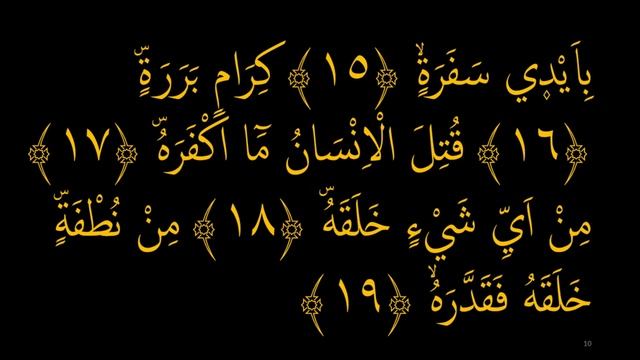 بِاَيْدِي سَفَرَةٍۙ ﴿١٥﴾ كِرَامٍ بَرَرَةٍۜ
﴿١٦﴾ قُتِلَ الْاِنْسَانُ مَٓا اَكْفَرَهُۜ ﴿١٧﴾
مِنْ اَيِّ شَيْءٍ خَلَقَهُۜ ﴿١٨﴾ مِنْ نُطْفَةٍۜ
خَلَقَهُ فَقَدَّرَهُۙ ﴿١٩﴾
10